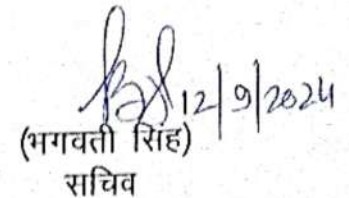 12/9/2024
(भगवती सिंह)
सचिव